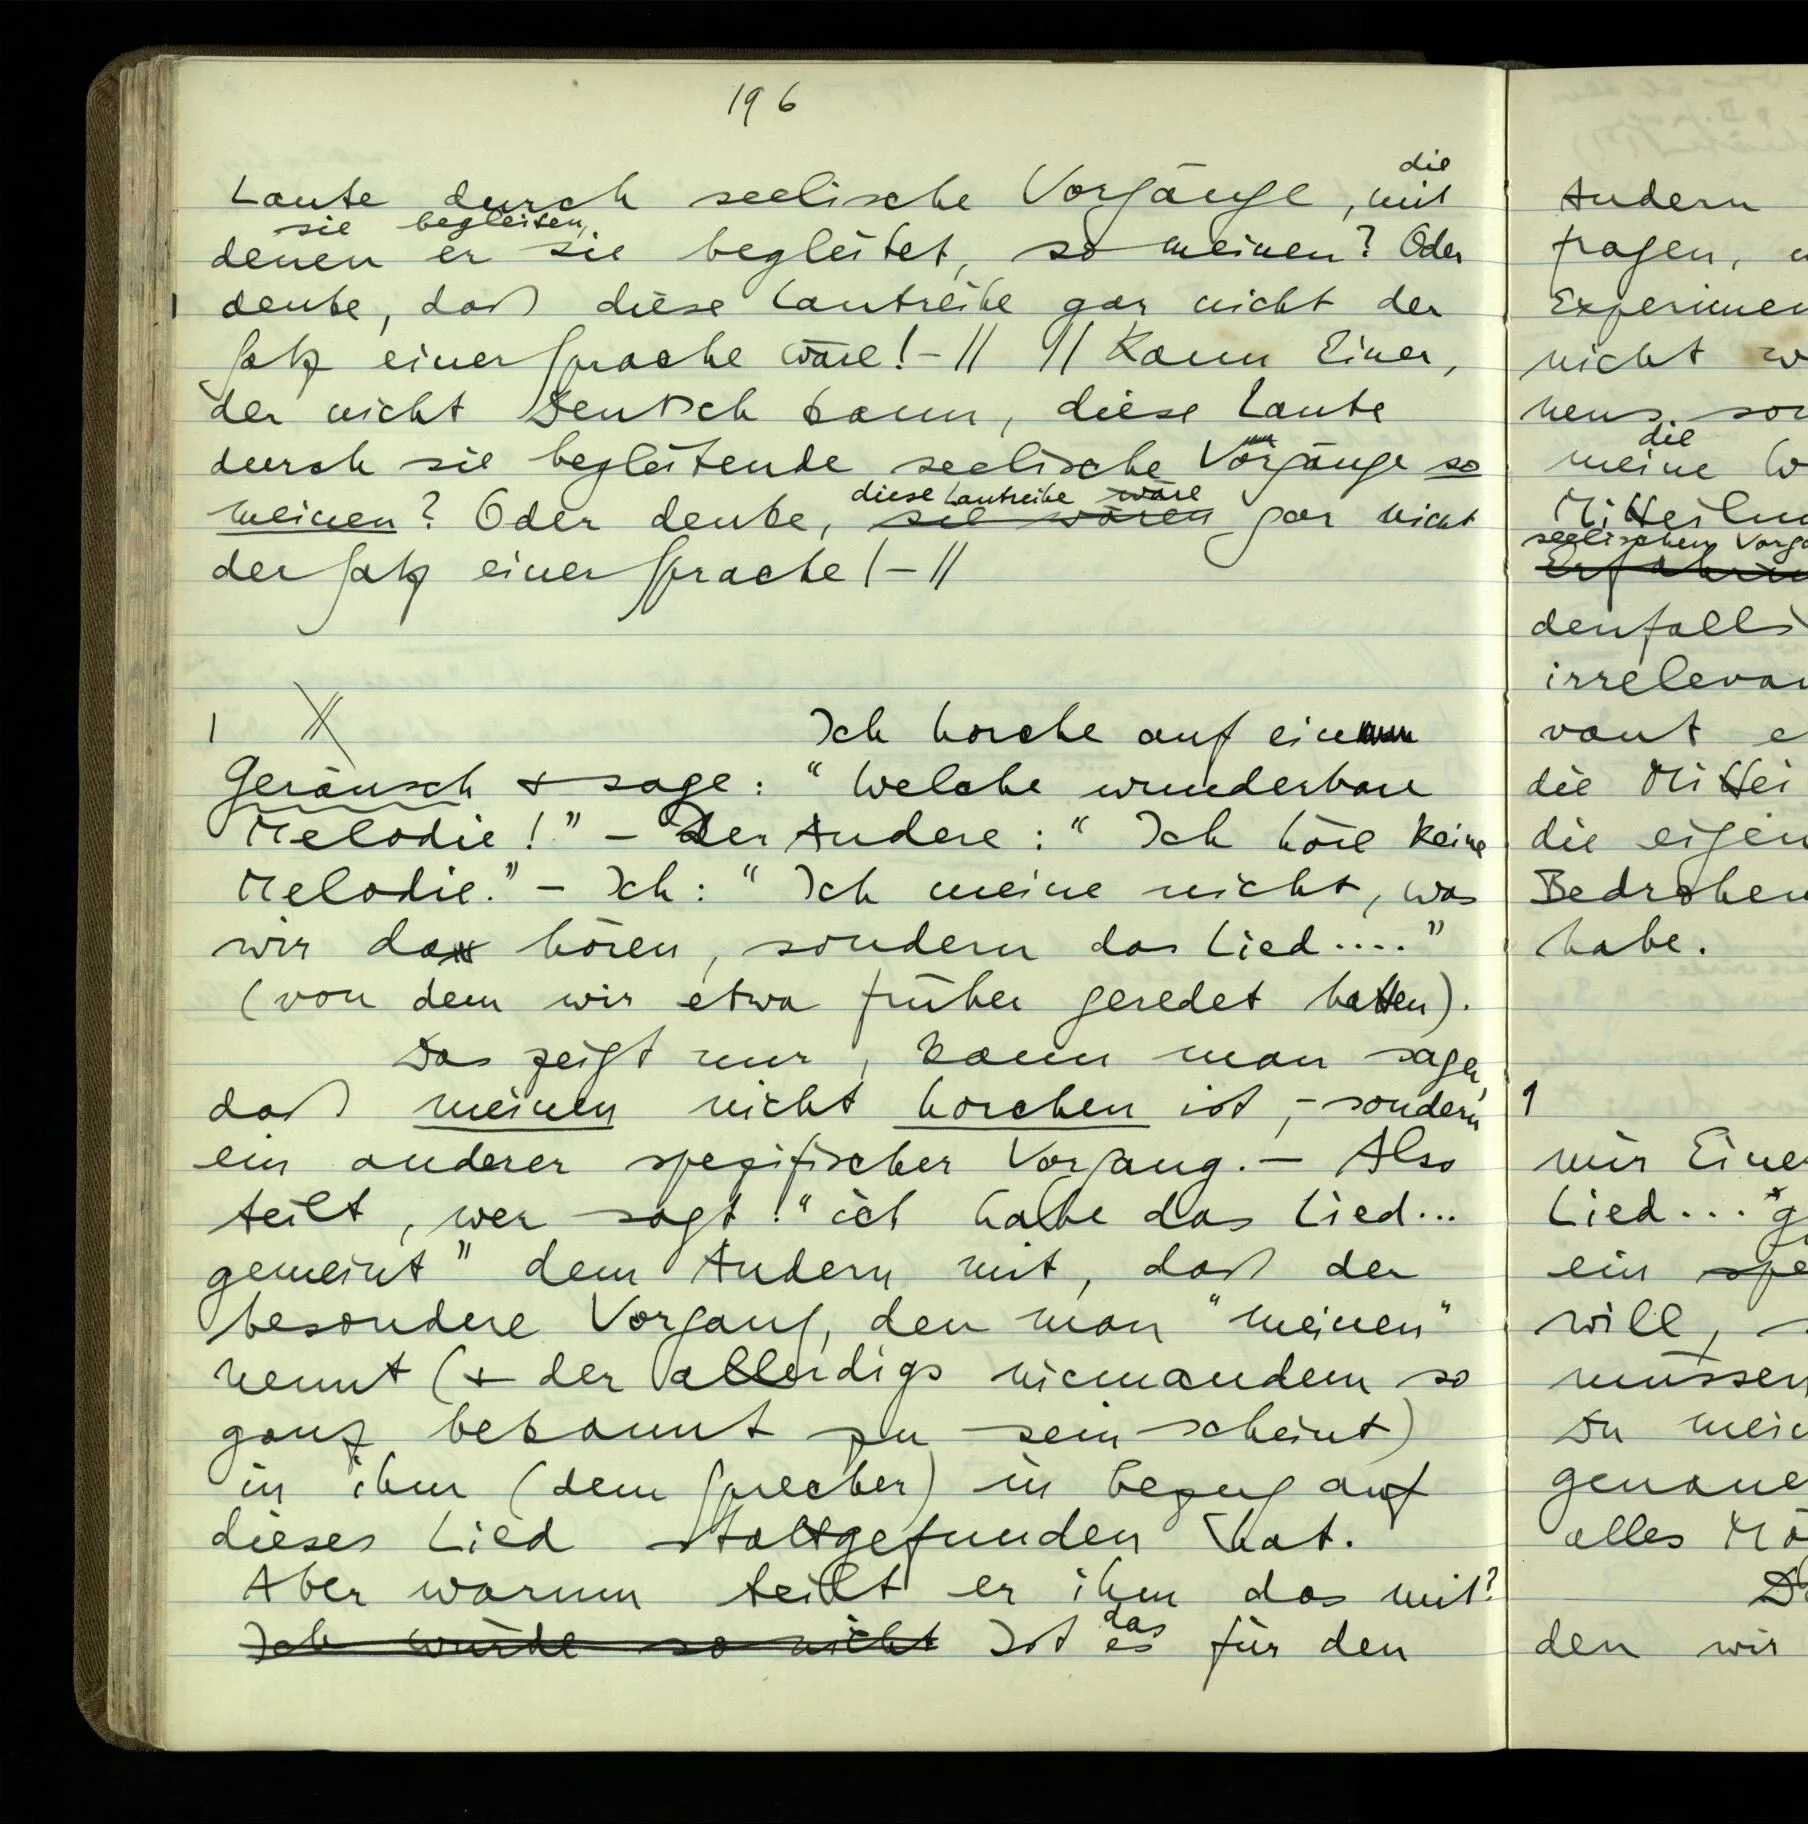 196
die
Laute durch seelische Vorgänge, mit
sie begleiten,
denen er sie begleitet, so meinen? Oder
denke, daß diese Lautreihe gar nicht der
Satz einer Sprache wäre! – // // Kann Einer,
der nicht Deutsch kann, diese Laute
durch sie begleitende seelische Vorgänge so
diese Lautreihe wäre
meinen? Oder denke, sie wären gar nicht
der Satz einer Sprache! – //
Ich horche auf ein
Geräusch & sage: “Welche wunderbare
Melodie!” – Der Andere: “Ich höre keine
Melodie.” – Ich: “Ich meine nicht, was
wir da hören, sondern das Lied....”
(von dem wir etwa früher geredet hatten).
Das zeigt nur, kann man sagen,
daß meinen nicht horchen ist, – sondern
ein anderer spezifischer Vorgang. – Also
teilt, wer sagt: “ich habe das Lied...
gemeint” dem Andern mit, daß der
besondere Vorgang, den man “meinen”
nennt (& der allerdigs niemandem so
ganz bekannt zu sein scheint)
in ihm (dem Sprecher) in Bezug auf
dieses Lied stattgefunden hat.
Aber warum teilt er ihm das mit?
das
Ich würde so nicht Ist es für den
Andern
fragen,
Experimen
nicht w
die
meine W
seelischen Vorgä
denfalls
irrelevan
vant e
die Mittei
die eigen
Bedrohen
habe.
mir Einer
Lied...
ein spe
will, s
müssen
Du mein
genaue
alles Mö
den wir